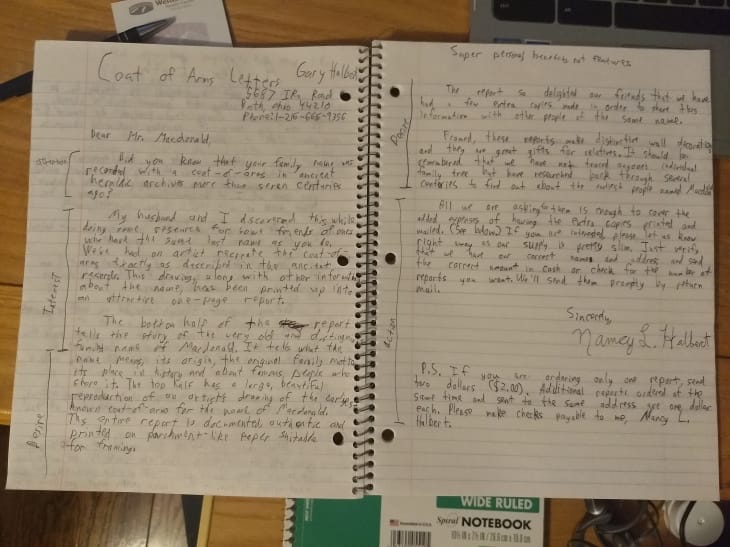 Coat of Arms Letters Gary Halbert
5687 Ira Road
Bath, Ohio 44210
Phone: 1-216-666-9356
Dear Mr. Macdonald,
Attention
Did you know that your family name was
recorded with a coat-of-arms in ancient
heraldic archives more than seven centuries
ago?
Interest
My husband and I discovered this while
doing some research for some friends of ours
who have the same last name as you do.
We've had an artist recreate the coat-of-
arms exactly as described in the ancient
records. This drawing, along with other information
about the name, has been printed up into
an attractive one-page report.
The bottom half of the report
tells the story of the very old and
family name of Macdonald. It tells what the
name means, its origin, the original family motto
its place in history and about famous people who
share it. The top half has a large, beautiful
reproduction of an artist's drawing of the
known coat-of-arms for the name of Macdonald.
This entire report is documented authentic and
printed on parchment-like paper suitable
for framing.
Desire
Super personal benefits not features
Desire
The report so delighted our friends that we have
had a few extra copies made in order to share this
information with other people of the same name.
Framed, these reports make distinctive wall decorations
and they are great gifts for relatives. It should be
remembered that we have not traced anyones individual
family tree but have researched back through several
centuries to find out about the earliest people named Macdonald
action
All we are asking for them is enough to cover the
added expenses of having the extra copies printed and
mailed. (See below) If you are interested, please let us know
right away as our supply is pretty slim. Just verify
that we have our correct name and address and send
the correct amount in cash or check for the number of
reports you want. We'll send them promptly by return
mail.
Sincerely,
Nancy L. Halbert
P.S. If you are ordering only one report, send
two dollars ($2.00). Additional reports ordered at the
same time and sent to the same address are one dollar
each. Please make checks payable to me, Nancy L.
Halbert.
WIDE RULED
Spiral NOTEBOOK
10½ in x 7½ in / 26.6 x 19.0 cm